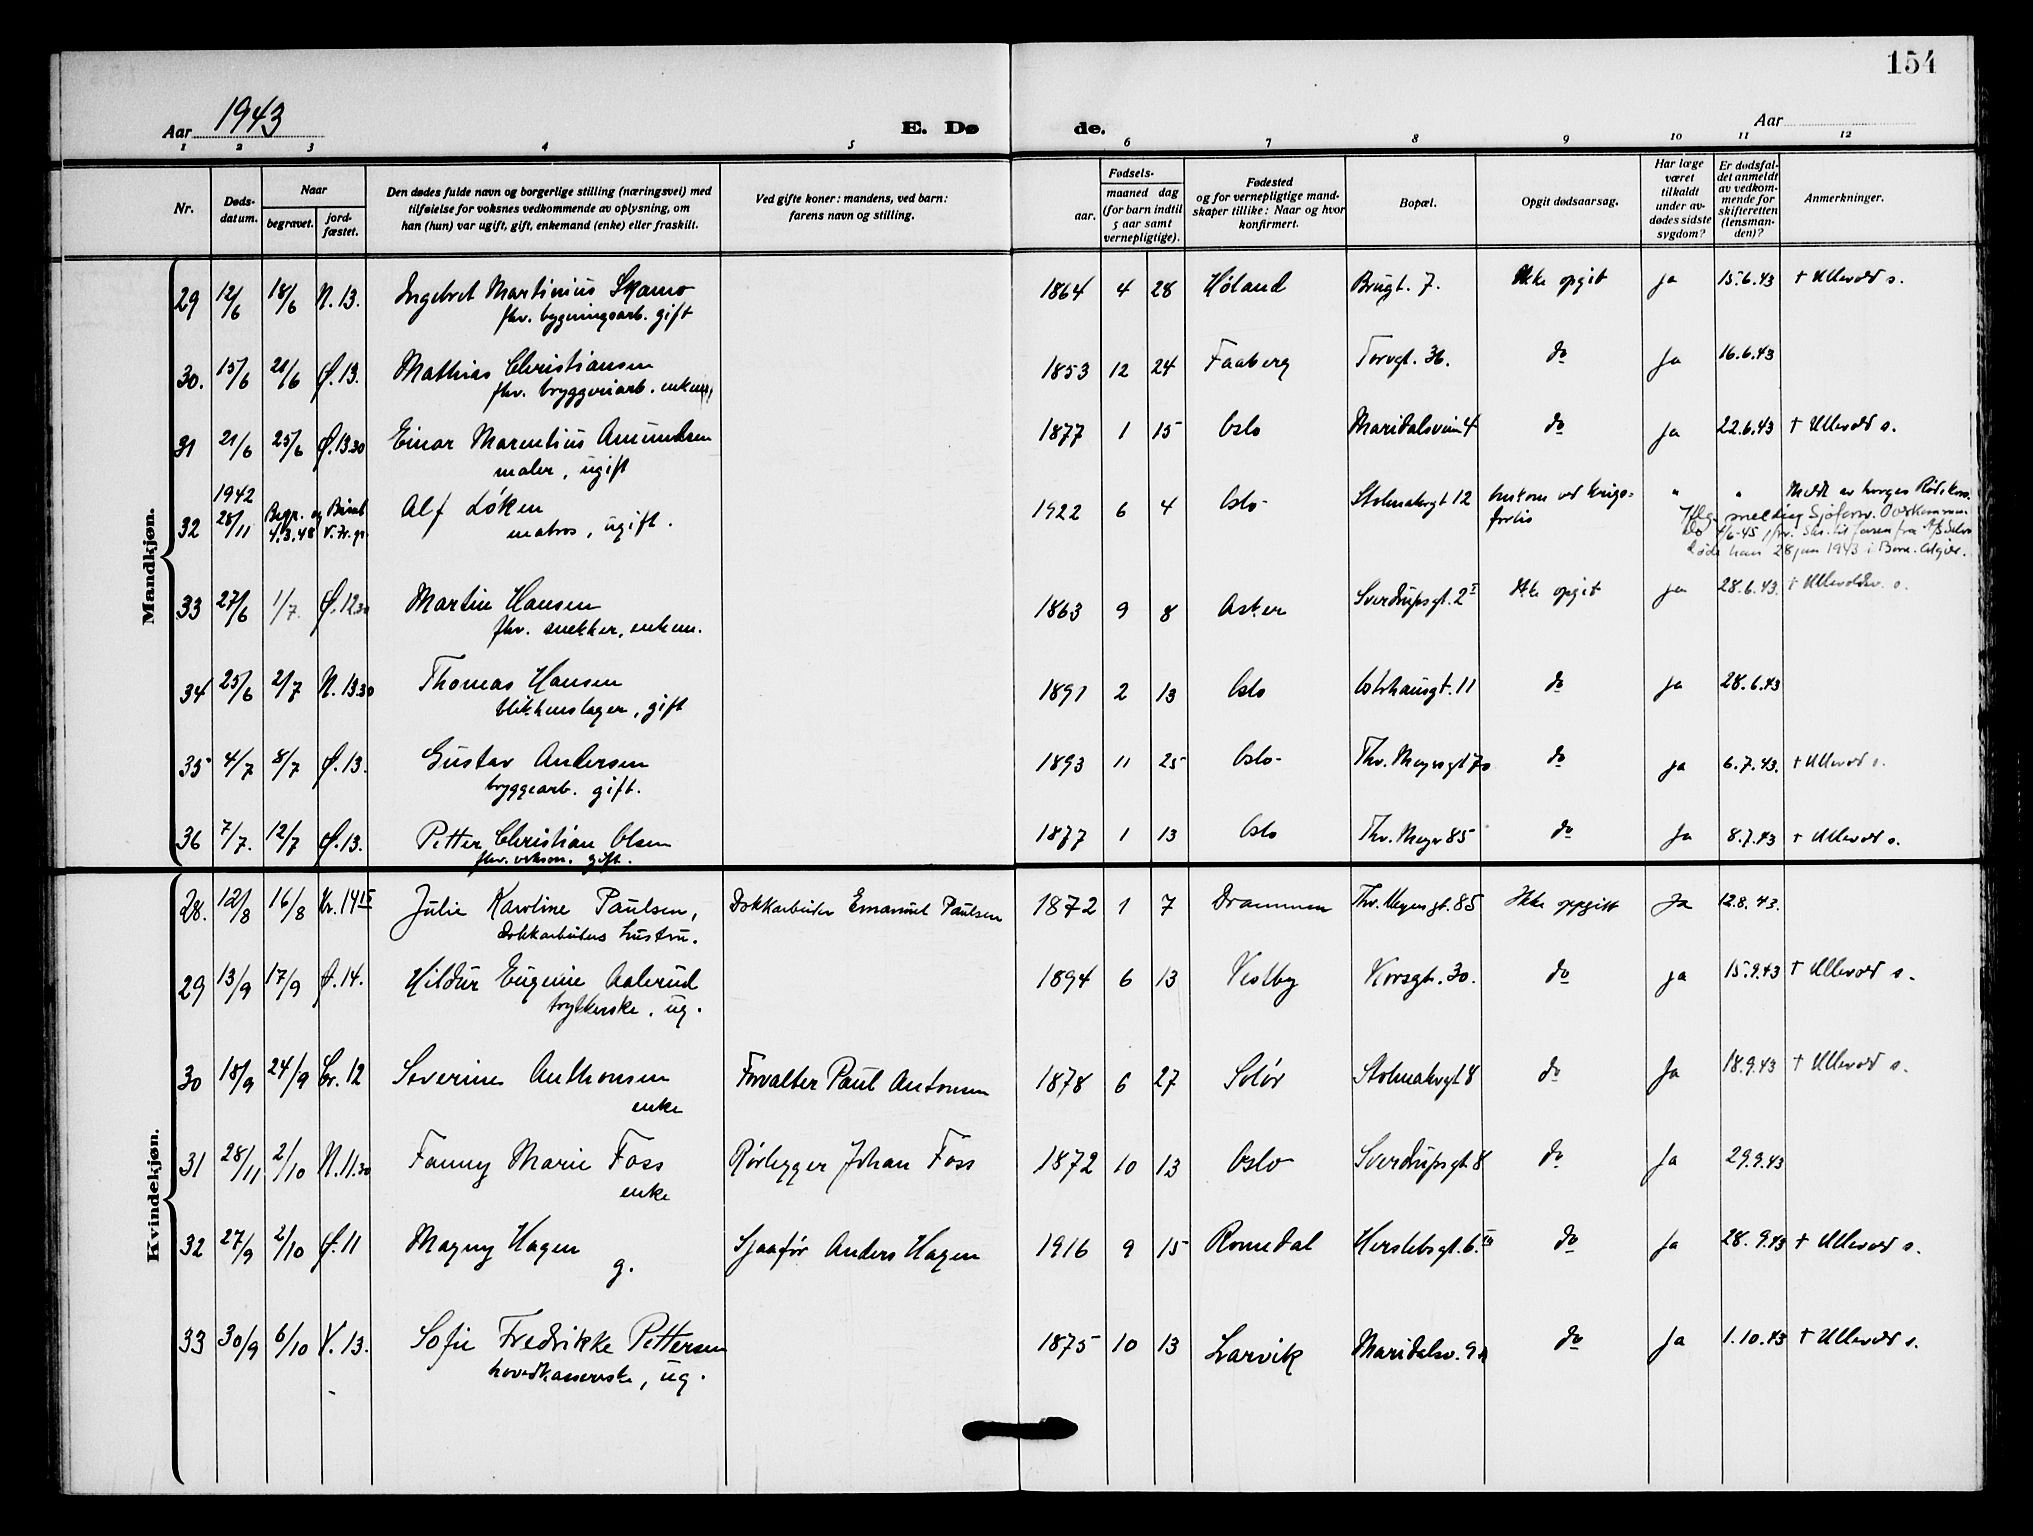 154
Aar 1943
E. Dø
de.
Aar
1 2 3 4 5 6 7 8 9 10 11 12
Nr.
Døds-
datum.
Naar
begravet.
jord-
fæstet.
Den dødes fulde navn og borgerlige stilling (næringsvei) med
tilføielse for voksnes vedkommende av oplysning, om
han (hun) var ugift, gift, enkemand (enke) eller fraskilt.
Ved gifte koner: mandens, ved barn:
farens navn og stilling.
Fødsels-
aar.
maaned dag
(for barn indtil
5 aar samt
vernepligtige).
Fødested
og for vernepligtige mand-
skaper tillike: Naar og hvor
konfirmert.
Bopæl.
Opgit dødsaarsag.
Har læge
været
tilkaldt
under av-
dødes sidste
sygdom?
Er dødsfal-
det anmeldt
av vedkom-
mende for
skifteretten
(lensman-
den)?
Anmerkninger.
Mandkjøn.
29 12/6 18/6 N. 13. Ingebret Martinius Skamo 1864 4 28 Høland Brugt. 7. Ikke opgit ja 15.6.43 + Ullevål s.
fhv. bygningsarb. gift
30. 15/6 21/6 Ø. 13. Mathias Christiansen 1853 12 24 Faaberg Torvgt. 36. do ja 16.6.43
fhv. bryggeriarb. enkem.
31 21/6 25/6 Ø. 13.30 Einar Marentius Amundsen 1877 1 15 Oslo Maridalsveien 4 do ja 22.6.43 + Ullevål s.
maler, ugift
1942
32 28/11 Begr. og Bisat Alf Løken 1922 6 4 Oslo Stolmakergt 12 omkom ved krigs- " " Meldt av Norges Røde Kors.
4.3.48 V. Fr. gr. matros, ugift. forlis
Iflg. melding Sjøforsv. Overkomman-
do 1/6-45
døde han 28 jan 1943 i Bona. Algier.
33 27/6 1/7. Ø. 12.30 Martin Hansen 1863 9 8 Asker Sverdrupsgt. 2 I Ikke opgit ja 28.6.43. + Ullevål s.
fhv. snekker, enkem.
34 25/6 2/7 N. 13.30 Thomas Hansen 1891 2 13 Oslo Calmeyersgt. 11 do ja 28.6.43
blikkenslager, gift
35 4/7 8/7 Ø. 13. Gustav Andersen 1893 11 25 Oslo Thv. Meyersgt 70 do ja 6.7.43. + Ullevål s.
bryggearb. gift.
36 7/7. 12/7 Ø. 13. Petter Christian Olsen 1877 1 13 Oslo Thv. Meyer 85 do ja 8.7.43 + Ullevål s.
gift.
Kvindekjøn.
28. 12/8 16/8 Kr. 14 15 Julie Karoline Paulsen, Dokkarbeider Emanuel Paulsen 1872 1 7 Drammen Thv. Meyersgt. 85 Ikke oppgitt Ja 12.8.43.
Dokkarbeiders hustru.
29 13/9 17/9 Ø. 14. Hildur Eugenie Aalerud 1894 6 13 Vestby Korsgt. 30. do ja 15.9.43 + Ullevål s.
trykkerske, ug.
30 18/9 24/9 Cr. 12 Severine Anthonsen Forvalter Paul Antonsen 1878 6 27 Solør Stolmakergt 8 do Ja 18.9.43 + Ullevål s.
enke
31 28/11 2/10 N. 11.30 Fanny Marie Foss Rørlegger Johan Foss 1872 10 13 Oslo Sverdrupsgt. 8 do Ja 29.9.43
enke
32 27/9 2/10 Ø. 11 Magny Hagen Sjaafør Anders Hagen 1916 9 15 Romedal Herslebsgt. 6. IV do Ja 28.9.43 + Ullevål s.
g.
33 30/9 6/10 V. 13. Sofie Fredrikke Pettersen 1875 10 13 Larvik Maridalsv. 9 do Ja 1.10.43 + Ullevål s.
hovedkassererske, ug.